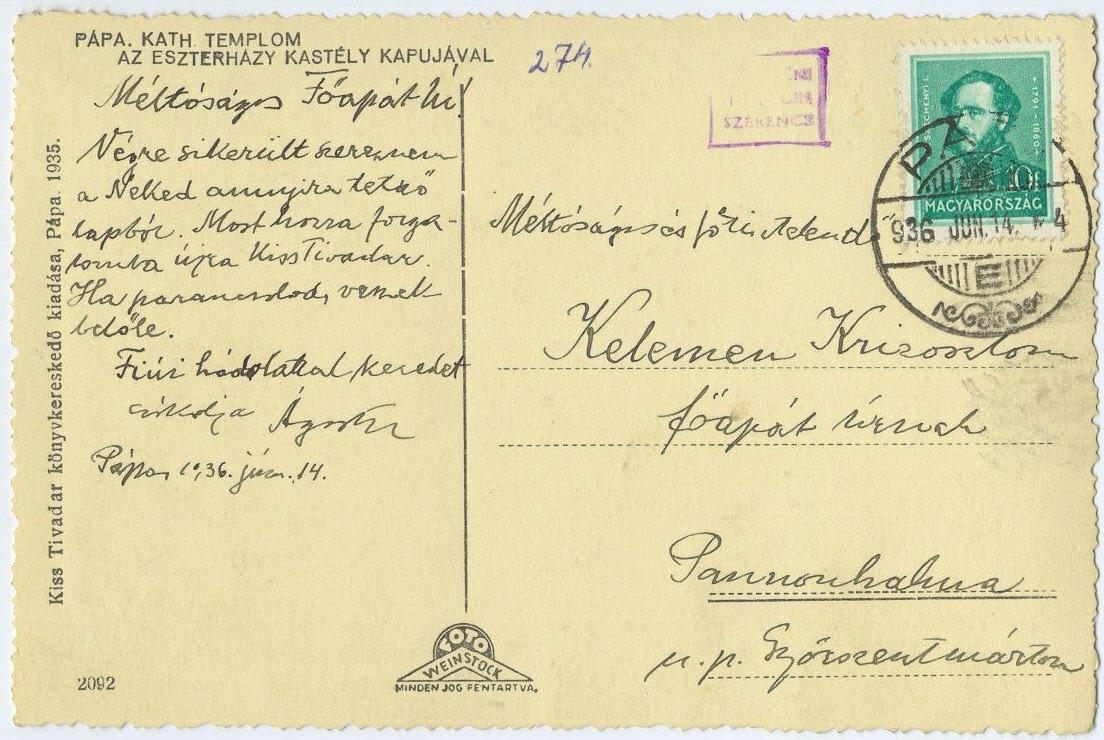 PÁPA. KATH. TEMPLOM
AZ ESZTERHÁZY KASTÉLY KAPUJÁVAL
274.
SZERENCS
Méltóságos Főapát Úr!
Végre sikerült szereznem
a Néked annyira tetsző
lapból. Most hozza forga-
lomba újra Kiss Tivadar.
Ha parancsolod, veszek
belőle.
Fiúi hódolattal kezedet
csókolja Ágoston
Pápa, 1936. jún. 14.
SZÉCHENYI I. 1791-1860
10f
MAGYARORSZÁG
PÁPA
936 JUN. 14. 4
E
Méltóságos és főtisztelendő
Kelemen Krizosztom
főapát úrnak
Pannonhalma
u. p. Győrszentmárton
Kiss Tivadar könyvkereskedő kiadása, Pápa 1935.
2092
FOTO
WEINSTOCK
MINDEN JOG FENTARTVA.